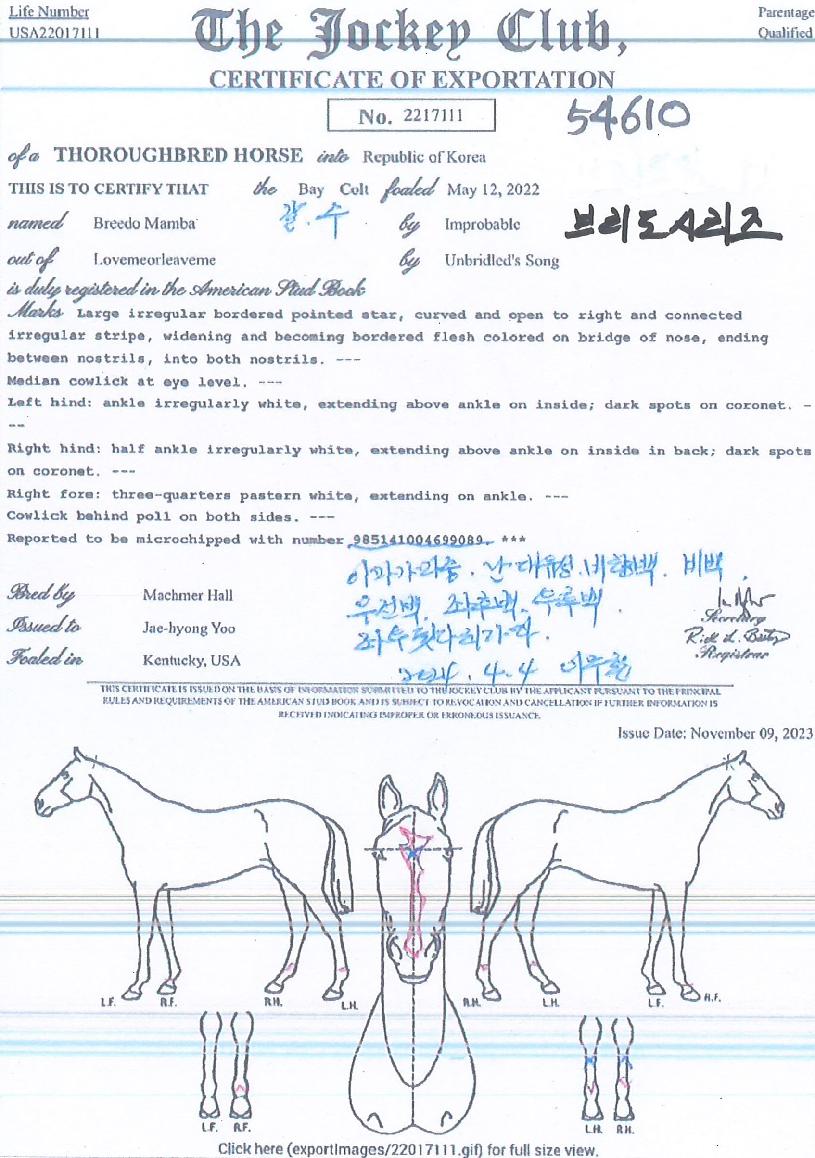 Life Number
USA22017111
Parentage
Qualified
The Jockey Club,
CERTIFICATE OF EXPORTATION
No. 2217111
54610
of a THOROUGHBRED HORSE into Republic of Korea
THIS IS TO CERTIFY THAT the Bay Colt foaled May 12, 2022
갈. 수
named Breedo Mamba by Improbable
브리도시리즈
out of Lovemeorleaveme by Unbridled's Song
is duly registered in the American Stud Book
Marks Large irregular bordered pointed star, curved and open to right and connected
irregular stripe, widening and becoming bordered flesh colored on bridge of nose, ending
between nostrils, into both nostrils. ---
Median cowlick at eye level. ---
Left hind: ankle irregularly white, extending above ankle on inside; dark spots on coronet. -
--
Right hind: half ankle irregularly white, extending above ankle on inside in back; dark spots
on coronet. ---
Right fore: three-quarters pastern white, extending on ankle. ---
Cowlick behind poll on both sides. ---
Reported to be microchipped with number 985141004699089. ***
비백
Bred by Machmer Hall
우전백. 좌후백.
Secretary
Issued to Jae-hyong Yoo
Registrar
Foaled in Kentucky, USA
2024. 4. 4
THIS CERTIFICATE IS ISSUED ON THE BASIS OF INFORMATION SUBMITTED TO THE JOCKEY CLUB BY THE APPLICANT PURSUANT TO THE PRINCIPAL
RULES AND REQUIREMENTS OF THE AMERICAN STUD BOOK AND IS SUBJECT TO REVOCATION AND CANCELLATION IF FURTHER INFORMATION IS
RECEIVED INDICATING IMPROPER OR ERRONEOUS ISSUANCE.
Issue Date: November 09, 2023
L.F. R.F. R.H. L.H. R.H. L.H. L.F. R.F.
L.F. R.F. L.H. R.H.
Click here (exportImages/22017111.gif) for full size view.